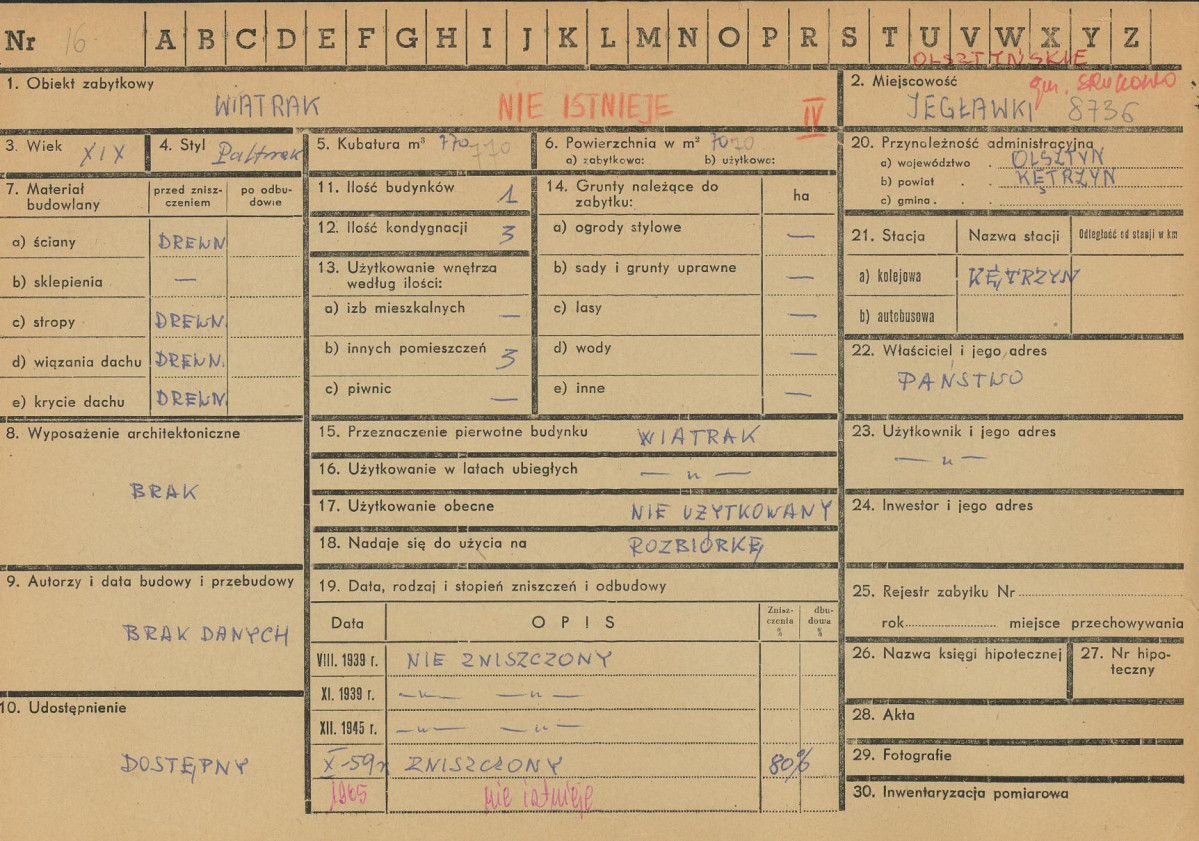 Nr 16 A B C D E F G H I J K L M N O P R S T U V W X Y Z
OLSZTYŃSKIE
1. Obiekt zabytkowy
WIATRAK NIE ISTNIEJE IV
2. Miejscowość gm. SROKOWO
JEGŁAWKI 8736
3. Wiek XIX
4. Styl Paltrak
5. Kubatura m³ 770 770
6. Powierzchnia w m² 70 70
a) zabytkowa: b) użytkowa:
7. Materiał budowlany
przed zniszczeniem
po odbudowie
a) ściany DREWN
b) sklepienia —
c) stropy DREWN.
d) wiązania dachu DREWN.
e) krycie dachu DREWN.
8. Wyposażenie architektoniczne
BRAK
9. Autorzy i data budowy i przebudowy
BRAK DANYCH
10. Udostępnienie
DOSTĘPNY
11. Ilość budynków 1
12. Ilość kondygnacji 3
13. Użytkowanie wnętrza
według ilości:
a) izb mieszkalnych —
b) innych pomieszczeń 3
c) piwnic —
14. Grunty należące do
zabytku:
ha
a) ogrody stylowe —
b) sady i grunty uprawne —
c) lasy —
d) wody —
e) inne —
15. Przeznaczenie pierwotne budynku WIATRAK
16. Użytkowanie w latach ubiegłych — „ —
17. Użytkowanie obecne NIE UŻYTKOWANY
18. Nadaje się do użycia na ROZBIÓRKĘ
19. Data, rodzaj i stopień zniszczeń i odbudowy
Data OPIS Zniszczenia % dbudowa %
VIII. 1939 r. NIE ZNISZCZONY
XI. 1939 r. — „ — — „ —
XII. 1945 r. — „ — — „ —
X-59r ZNISZCZONY 80%
1965 nie istnieje
20. Przynależność administracyjna
a) województwo OLSZTYN
b) powiat KĘTRZYN
c) gmina
21. Stacja
Nazwa stacji
Odległość od stacji w km
a) kolejowa KĘTRZYN
b) autobusowa
22. Właściciel i jego adres
PAŃSTWO
23. Użytkownik i jego adres
— „ —
24. Inwestor i jego adres
25. Rejestr zabytku Nr
rok miejsce przechowywania
26. Nazwa księgi hipotecznej
27. Nr hipoteczny
28. Akta
29. Fotografie
30. Inwentaryzacja pomiarowa